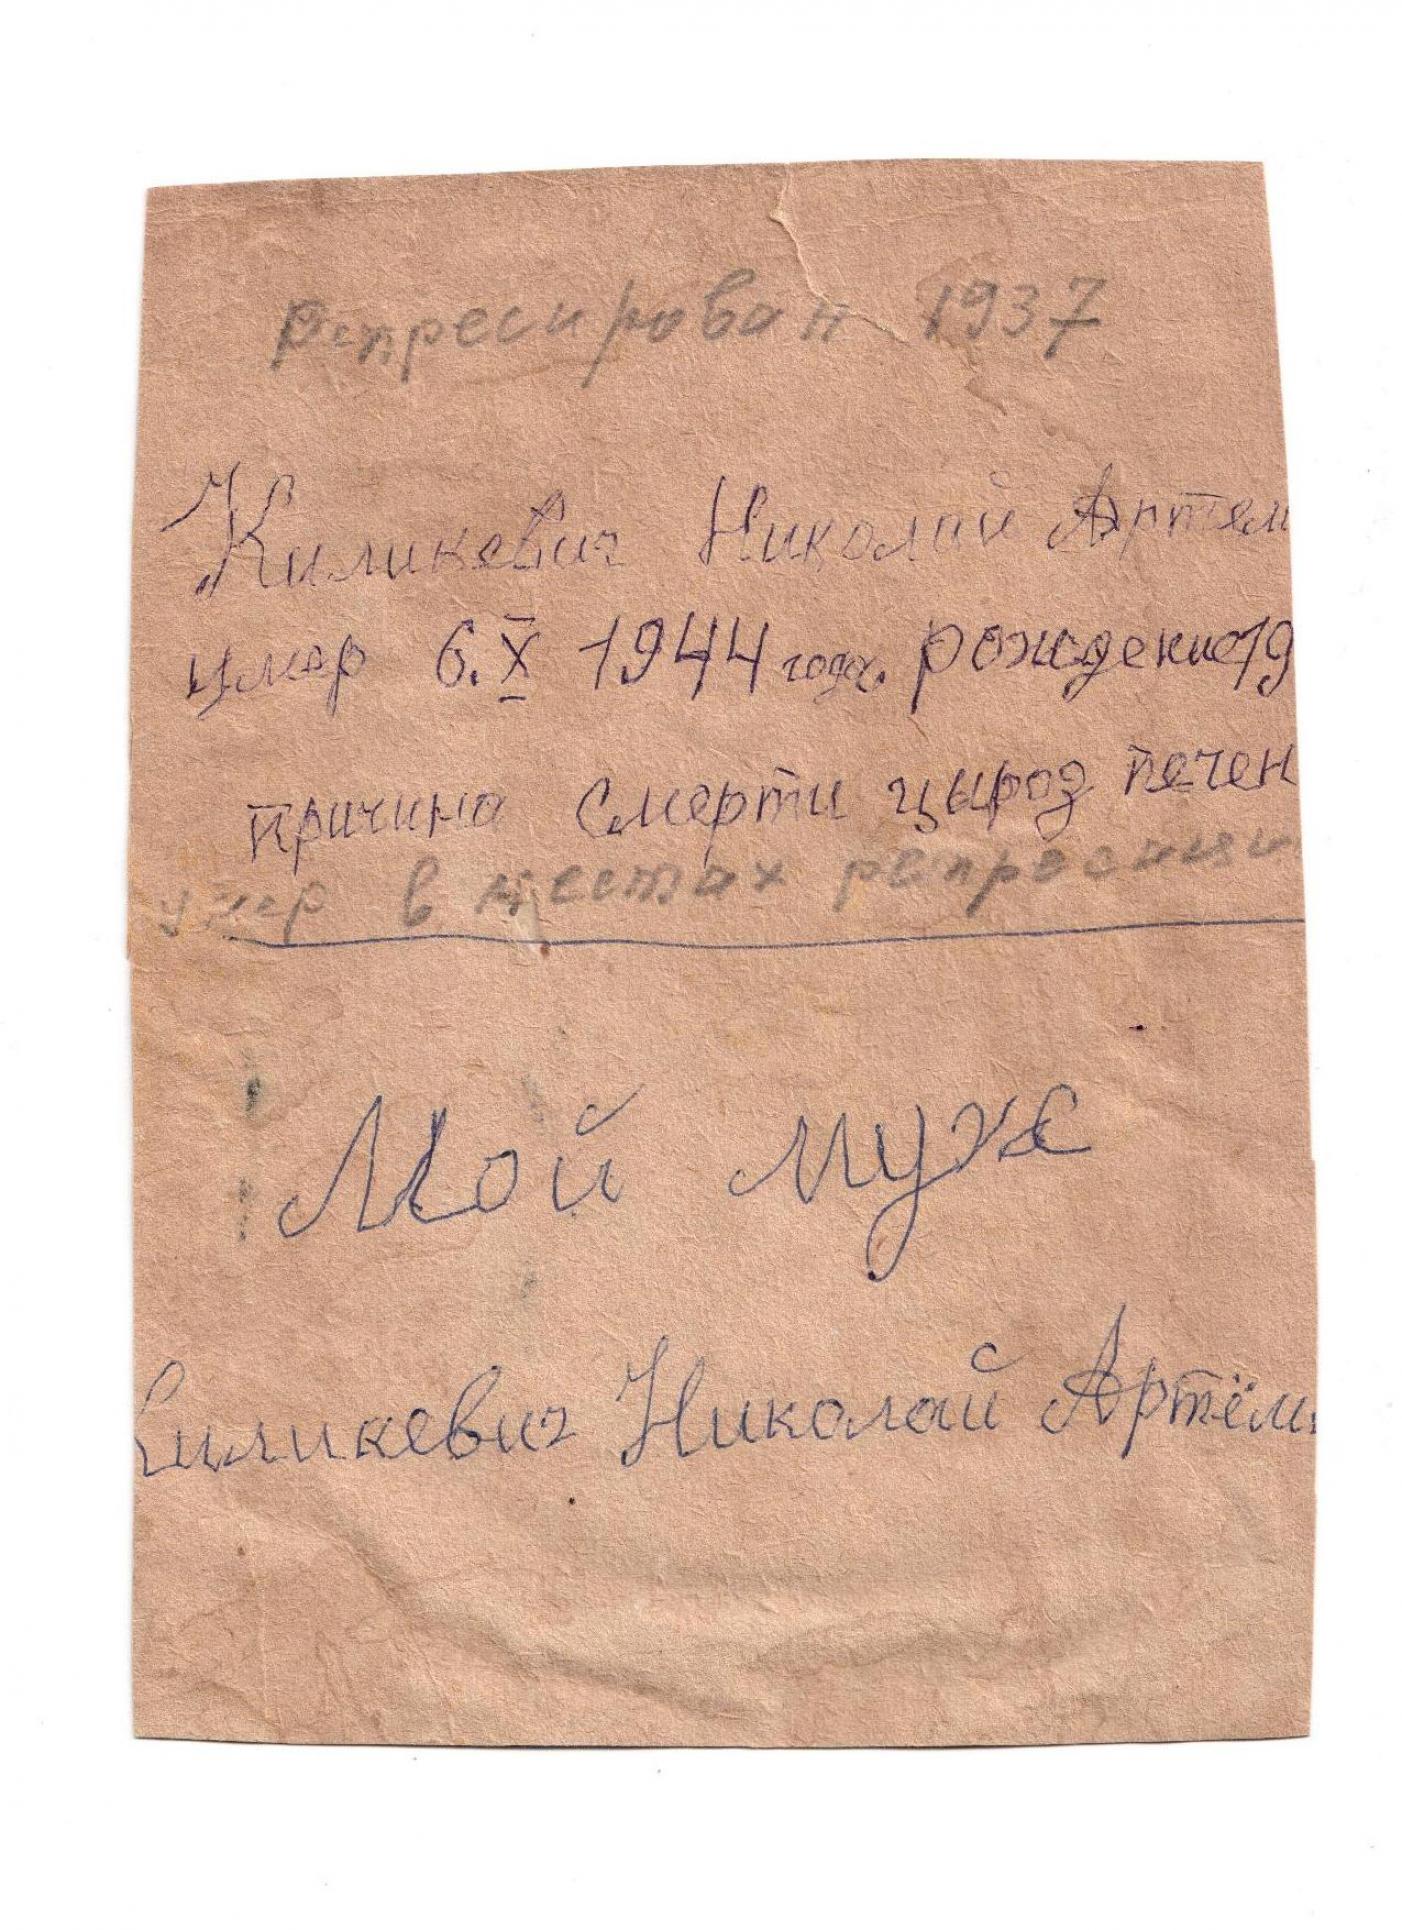 репресирован 1937
Киликевич Николай Артем
умер 6.X 1944 года. рождение 19
причина смерти цыроз печен
умер в местах репресиции
Мой муж
Киликевич Николай Артём